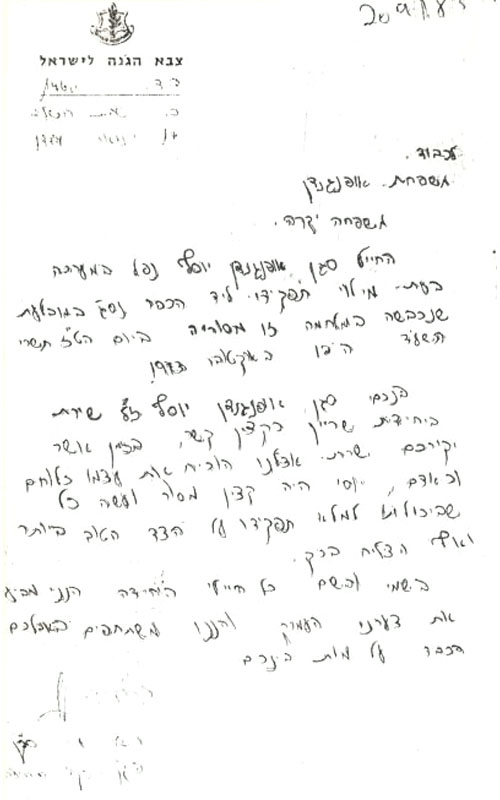 צבא הגנה לישראל
לכבוד.
משפחת אופנגנדן
משפחה יקרה.
החייל סגן אופנגנדן יוסף נפל במערכה
בעת מילוי תפקידו ליד הכפר נסג במובלעת
שנכבשה במלחמה זו מסוריה ביום הט"ז תשרי
תשל"ד ה באוקטובר 1973.
בנכם סגן אופנגנדן יוסף ז"ל שירת
ביחידת שריון כקצין קשר, בזמן אשר
יקירכם שרת אצלנו הוכיח את עצמו כלוחם
וכאדם, יוסי היה קצין מסור ועשה כל
שביכולתו למלא תפקידו על הצד הטוב ביותר
ואף הצליח בכך.
בשמי ובשם כל חיילי היחידה הנני מביע
את צערנו העמוק והננו משתתפים באבלכם
הכבד על מות בינכם